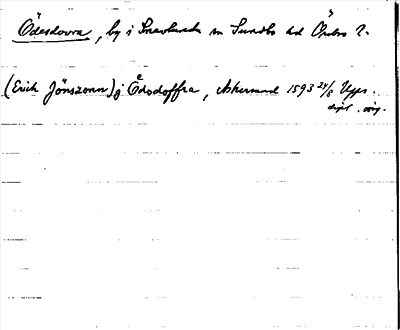 Ödesdovra, by i Snavlunda sn Sundbo hd Örebro l.
(Erich Jönszonn) j Ödodoffra, Askersund 1593 24/8 Upps.
dipl. orig.